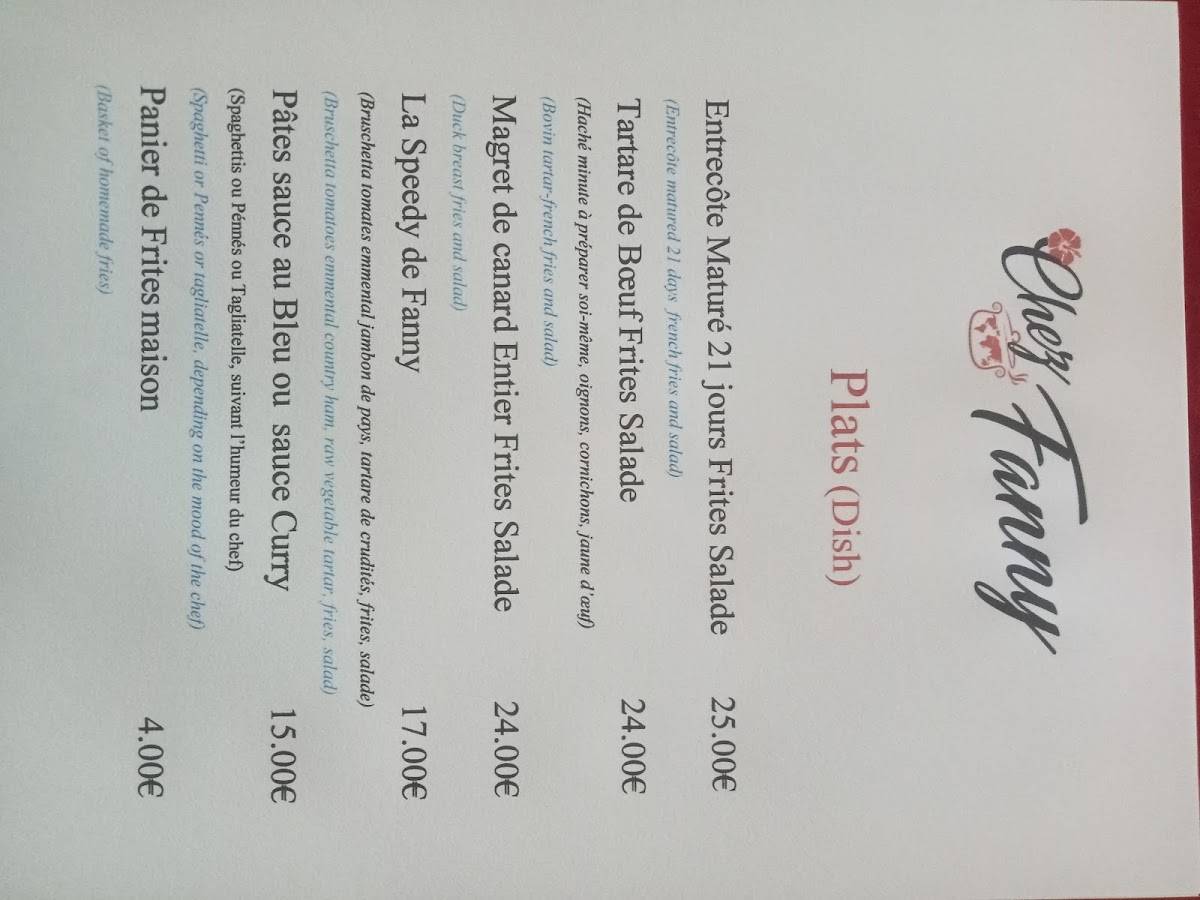 Chez Fanny
Plats (Dish)
Entrecôte Maturé 21 jours Frites Salade 25.00€
(Entrecôte matured 21 days french fries and salad)
Tartare de Bœuf Frites Salade 24.00€
(Haché minute à préparer soi-même, oignons, cornichons, jaune d'œuf)
(Bovin tartar-french fries and salad)
Magret de canard Entier Frites Salade 24.00€
(Duck breast fries and salad)
La Speedy de Fanny 17.00€
(Bruschetta tomates emmental jambon de pays, tartare de crudités, frites, salade)
(Bruschetta tomatoes emmental country ham, raw vegetable tartar, fries, salad)
Pâtes sauce au Bleu ou sauce Curry 15.00€
(Spaghettis ou Pénnés ou Tagliatelle, suivant l'humeur du chef)
(Spaghetti or Pennés or tagliatelle, depending on the mood of the chef)
Panier de Frites maison 4.00€
(Basket of homemade fries)